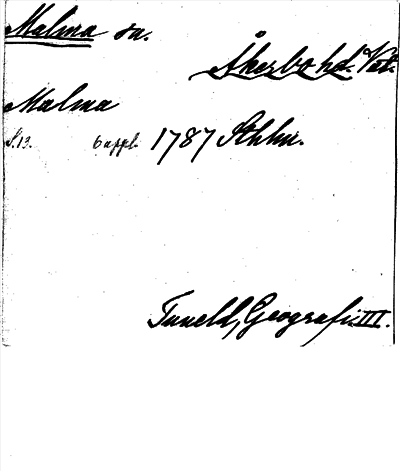 Malma sn.
Åkerbo hd. Vstm.
Malma
S. 13. 6 uppl. 1787 Sthlm.
Tuneld, Geografi. III.